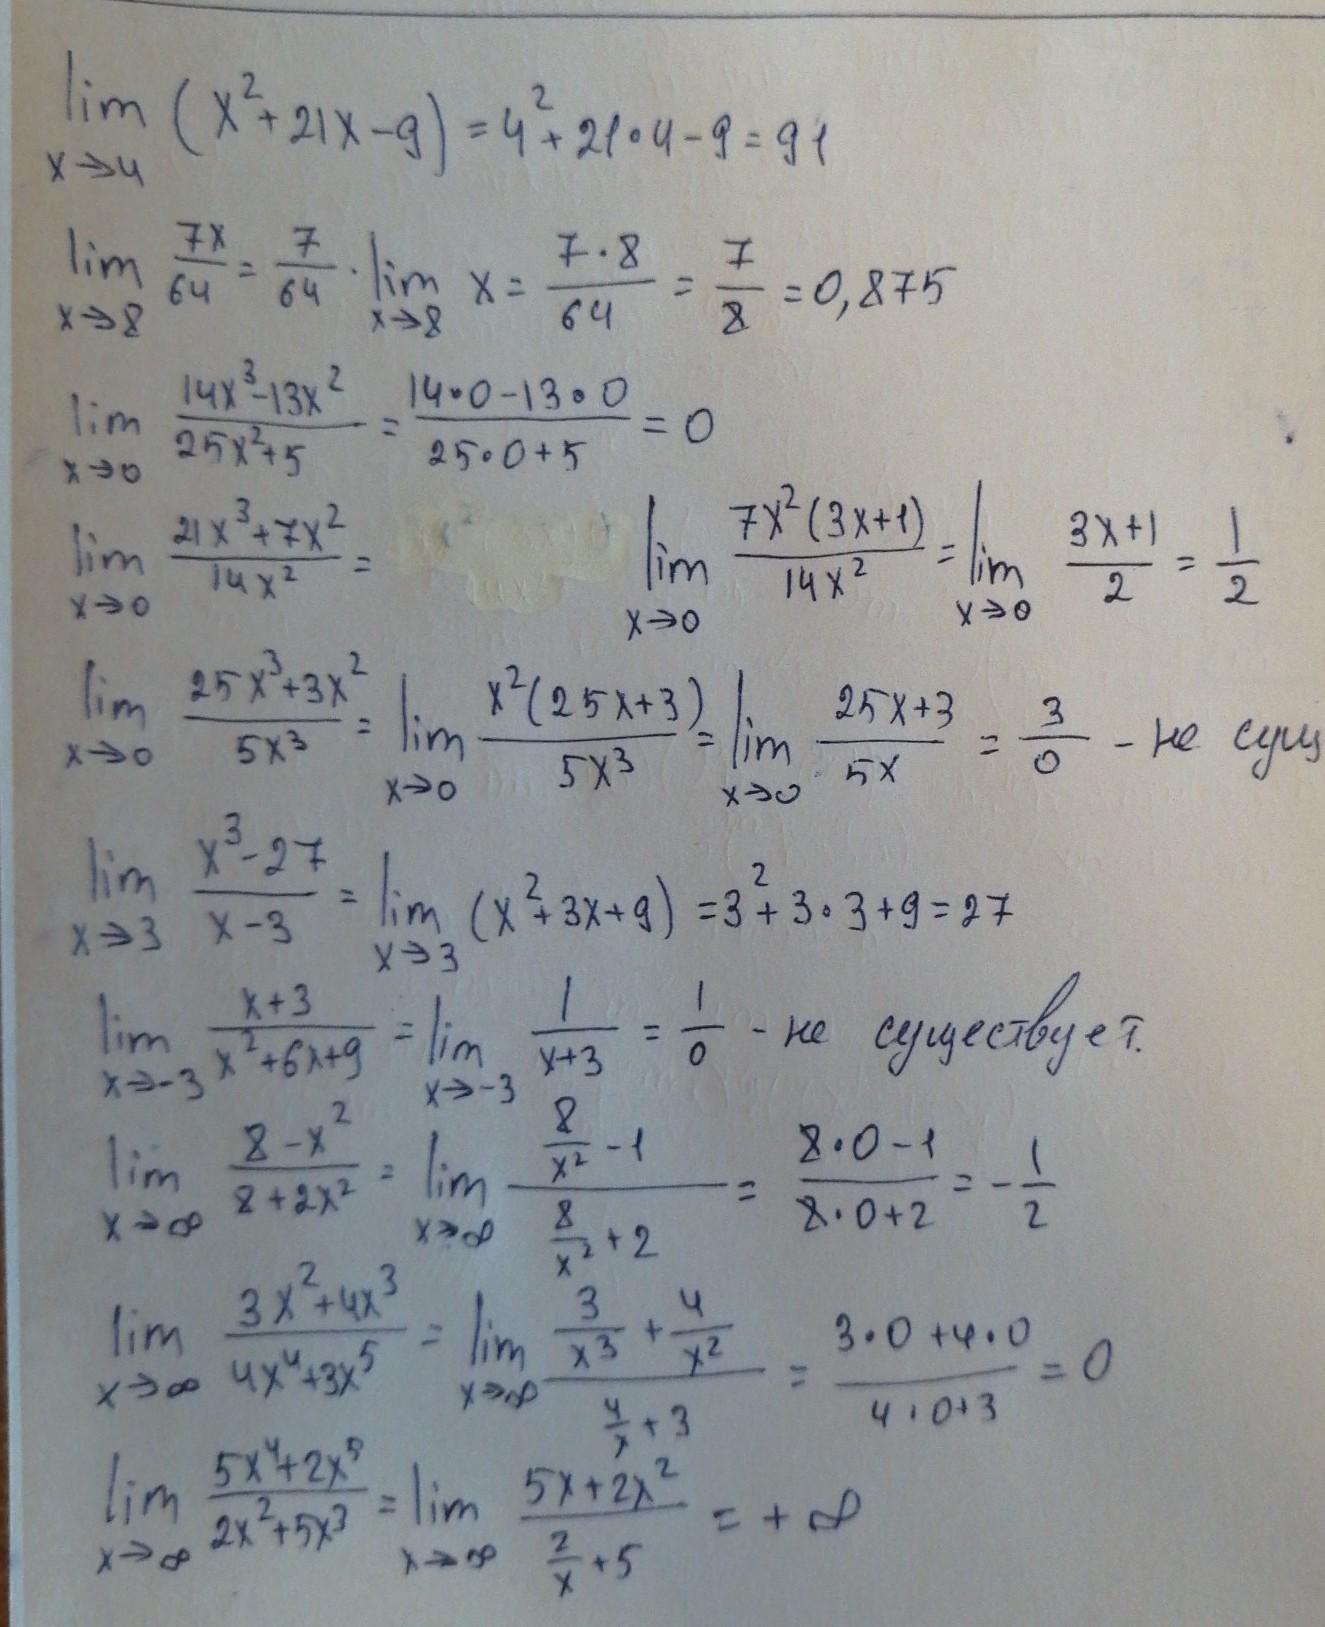 lim x→4 (x²+21x-9) = 4²+21•4-9=91
lim x→8 7x/64 = 7/64 · lim x→8 x = 7·8/64 = 7/8 = 0,875
lim x→0 (14x³-13x²)/(25x²+5) = (14•0-13•0)/(25•0+5) = 0
lim x→0 (21x³+7x²)/(14x²) = lim x→0 7x²(3x+1)/(14x²) = lim x→0 (3x+1)/2 = 1/2
lim x→0 (25x³+3x²)/(5x³) = lim x→0 x²(25x+3)/(5x³) = lim x→0 (25x+3)/(5x) = 3/0 - не сущ
lim x→3 (x³-27)/(x-3) = lim x→3 (x²+3x+9) = 3²+3•3+9=27
lim x→-3 (x+3)/(x²+6x+9) = lim x→-3 1/(x+3) = 1/0 - не существует.
lim x→∞ (8-x²)/(8+2x²) = lim x→∞ (8/x²-1)/(8/x²+2) = (8•0-1)/(8•0+2) = -1/2
lim x→∞ (3x²+4x³)/(4x⁴+3x⁵) = lim x→∞ (3/x³+4/x²)/(4/x+3) = (3•0+4•0)/(4•0+3) = 0
lim x→∞ (5x⁴+2x⁵)/(2x²+5x³) = lim x→∞ (5x+2x²)/(2/x+5) = +∞